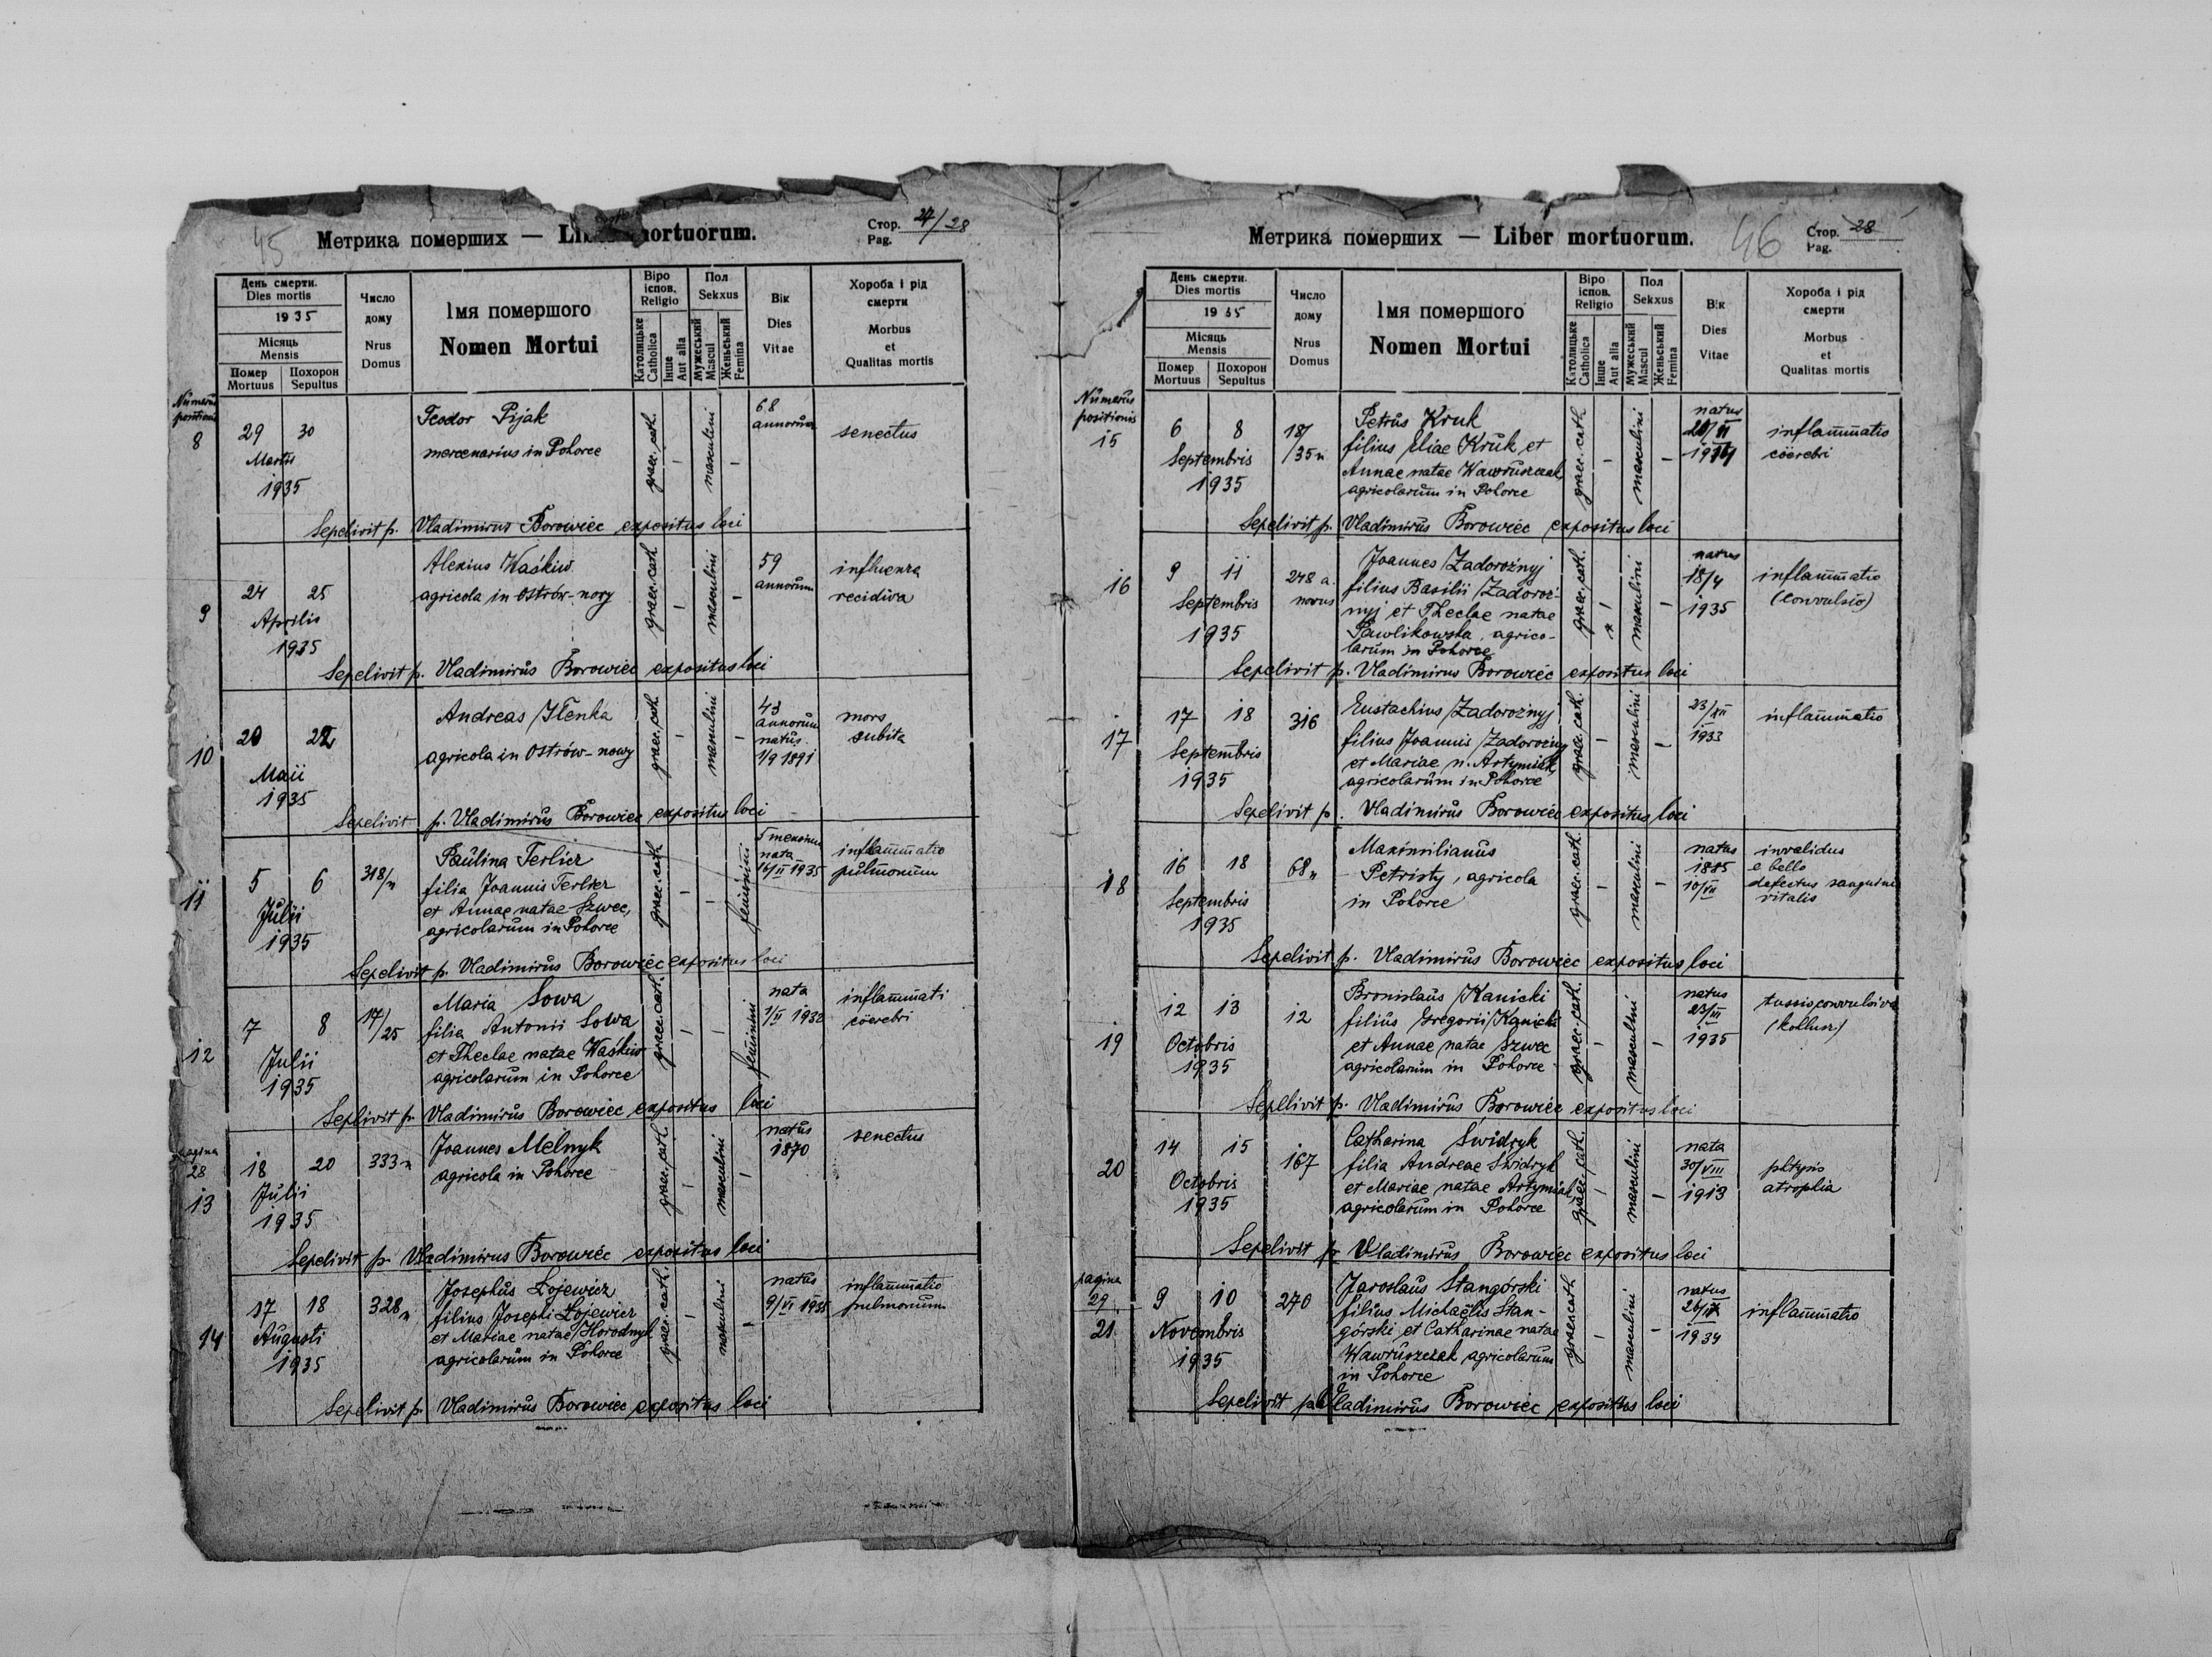 45
Метрика померших — Liber mortuorum.
Стор. 27/28
Pag.
День смерти.
Dies mortis
1935
Місяць
Mensis
Помер
Mortuus
Похорон
Sepultus
Число
дому
Nrus
Domus
Імя помершого
Nomen Mortui
Віро
ісnов.
Religio
Католицьке
Catholica
Інше
Aut alia
Пол
Sekxus
Мужеський
Mascul
Женьський
Femina
Вік
Dies
Vitae
Хороба і рід
смерти
Morbus
et
Qualitas mortis
Numerus
positionis
8
29 30
Martii
1935
Teodor Pijak
mercenarius in Pohorce
graec. cath. – masculini –
68
annorum
senectus
Sepelivit p. Vladimirus Borowiec expositus loci
9
24 25
Aprilis
1935
Alexius Waśkiw
agricola in Ostrów-nowy
graec. cath – masculini –
59
annorum
influenza
recidiva
Sepelivit p. Vladimirus Borowiec expositus loci
10
20 22
Maii
1935
Andreas Hlenka
agricola in Ostrów-nowy
graec. cath. – masculini –
43
annorum
natus
1/9 1891
mors
subita
Sepelivit p. Vladimirus Borowiec expositus loci
11
5 6
Julii
1935
318/n
Paulina Terlier
filia Joannis Terlier
et Annae natae Szwec,
agricolarum in Pohorce
graec. cath – – feminini
5 mensium
nata
16/II 1935
inflammatio
pulmonum
Sepelivit p. Vladimirus Borowiec expositus loci
12
7 8
Julii
1935
17/25
Maria Sowa
filia Antonii Sowa
et Theclae natae Waśkiw
agricolarum in Pohorce
graec. cath. – – feminini
nata
1/II 1932
inflammati
cöerebri
Seplivit p. Vladimirus Borowiec expositus loci
pagina
28
13
18 20
Julii
1935
333n
Joannes Melnyk
agricola in Pohorce
graec. cath. – masculini –
natus
1870
senectus
Sepelivit p. Vladimirus Borowiec expositus loci
14
17 18
Augusti
1935
328n
Josephus Łojewicz
filius Josephi Łojewicz
et Mariae natae Horodnyk
agricolarum in Pohorce
graec. cath. – masculini –
natus
9/VI 1935
inflammatio
pulmonum
Sepelivit p. Vladimirus Borowiec expositus loci
Метрика померших — Liber mortuorum.
46
Стор. 28
Pag.
День смерти.
Dies mortis
1935
Місяць
Mensis
Помер
Mortuus
Похорон
Sepultus
Число
дому
Nrus
Domus
Імя помершого
Nomen Mortui
Віро
іспов.
Religio
Католицьке
Catholica
Інше
Aut alia
Пол
Sekxus
Мужеський
Mascul
Женьський
Femina
Вік
Dies
Vitae
Хороба і рід
смерти
Morbus
et
Qualitas mortis
Numerus
positionis
15
6 8
Septembris
1935
18/
/35n
Petrus Kruk
filius Eliae Kruk et
Annae natae Wawruszczak,
agricolarum in Pohorce
graec. cath – masculini –
natus
inflammatio
cöerebri
Sepelivit p. Vladimirus Borowiec expositus loci
16
9 11
Septembris
1935
248 a.
novus
Joannes Zadorożnyj
filius Basilii Zadoroż-
nyj et Theclae natae
Pawlikowska, agrico-
larum in Pohorce
graec. cath. – masculini –
natus
18/4
1935
inflammatio
(convulsio)
Sepelivit p. Vladimirus Borowiec expositus loci
17
17 18
Septembris
1935
316
Eustachius Zadorożnyj
filius Joannis Zadorożnyj
et Mariae n. Artymiak,
agricolarum in Pohorce
graec. cath. – masculini –
23/XII
1933
inflammatio
Sepelivit p. Vladimirus Borowiec expositus loci
18
16 18
Septembris
1935
68n
Maximilianus
Petristy, agricola
in Pohorce
graec. cath. – masculini –
natus
1885
10/VII
invalidus
e bello
defectus sanguine
vitalis
Sepelivit p. Vladimirus Borowiec expositus loci
19
12 13
Octobris
1935
12
Bronislaus Kanicki
filius Gregorii Kanicki
et Annae natae Szwec
agricolarum in Pohorce
graec. cath. – masculini –
natus
23/III
1935
tussis convulsiva
Sepelivit p. Vladimirus Borowiec expositus loci
20
14 15
Octobris
1935
167
Catharina Swidryk
filia Andreae Swidryk
et Mariae natae Artymiak,
agricolarum in Pohorce
graec. cath. – masculini –
nata
30/VIII
1913
phtysis
atrophia
Sepelivit p. Vladimirus Borowiec expositus loci
pagina
29.
21.
9 10
Novembris
1935
270
Jaroslaus Stangórski
filius Michaëlis Stan-
górski et Catharinae natae
Wawruszczak agricolarum
in Pohorce
graec. cath – masculini –
natus
26/IX
1934
inflammatio
Sepelivit p. Vladimirus Borowiec expositus loci